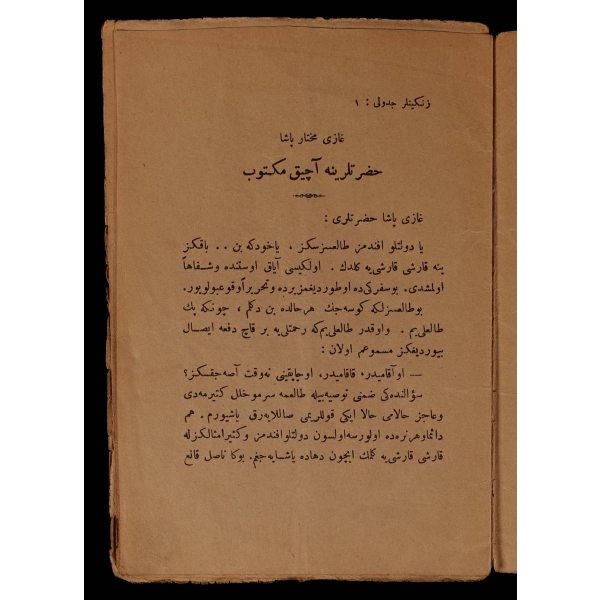 زنكينلر جدولى : ١
غازى مختار پاشا
حضرتلرينه آچيق مكتوب
غازى پاشا حضرتلرى :
يا دولتلو افندمز طالعسزسكز ، ياخودكه بن . . باقكز
ينه قارشى قارشى‌يه كلدك . اولكيسى آياق اوستنده وشفاهاً
اولمشدى. بوسفركى‌ده اوطورديغمز يرده وتحريراً وقوعبولويور.
بوطالعسزلكه كوسه‌جك هرحالده بن دكلم ، چونكه پك
طالعلى‌يم . واوقدر طالعلى‌يم‌كه رحمتلى‌يه بر قاچ دفعه ايصال
بيورديغكز مسموعم اولان :
— اوآقاميدر، قاقاميدر، اوچاپقينى نه‌وقت آصه‌جقسكز؟
سؤالنده‌كى ضمنى توصيه‌بيله طالعمه سرموخلل كتيرمه‌دى
وعاجز حالامى حالا ايكى قوللريمى صاللايه‌رق ياشيورم . هم
دائما وهرنره‌ده اولورسه‌اولسون دولتلو افندمز وكثيرامثالكزله
قارشى قارشى‌يه كلمك ايچون دهاده ياشايه‌جغم. بوكا ناصل قانع